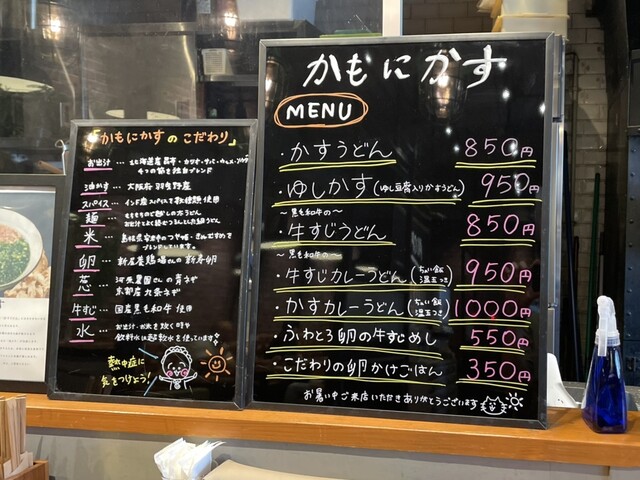 「かもにかすのこだわり」
お出汁…北海道産昆布・カツオ・サバ・ウルメ・
4つの節を独自ブレンド
油かす…大阪府羽曳野産
スパイス…インド産スパイスで数種類使用
麺…
お出汁とよく絡むうどん
米…島根県
ブレンドしています。
卵…
葱…河原農園さんの青ネギ
京都産九条ネギ
牛すじ…国産黒毛和牛使用
水…お出汁・お米を炊く時や
飲料水は超軟水を使っています
熱中症に
気をつけよう!
かもにかす
MENU
・かすうどん 850円
・ゆしかす(ゆし豆腐入りかすうどん) 950円
~黒毛和牛の~
・牛すじうどん 850円
~黒毛和牛の~
・牛すじカレーうどん(ちょい飯温玉つき) 950円
・かすカレーうどん(ちょい飯温玉つき) 1000円
・ふわとろ卵の牛すじめし 550円
・こだわりの卵かけごはん 350円
お暑い中ご来店いただきありがとうございます